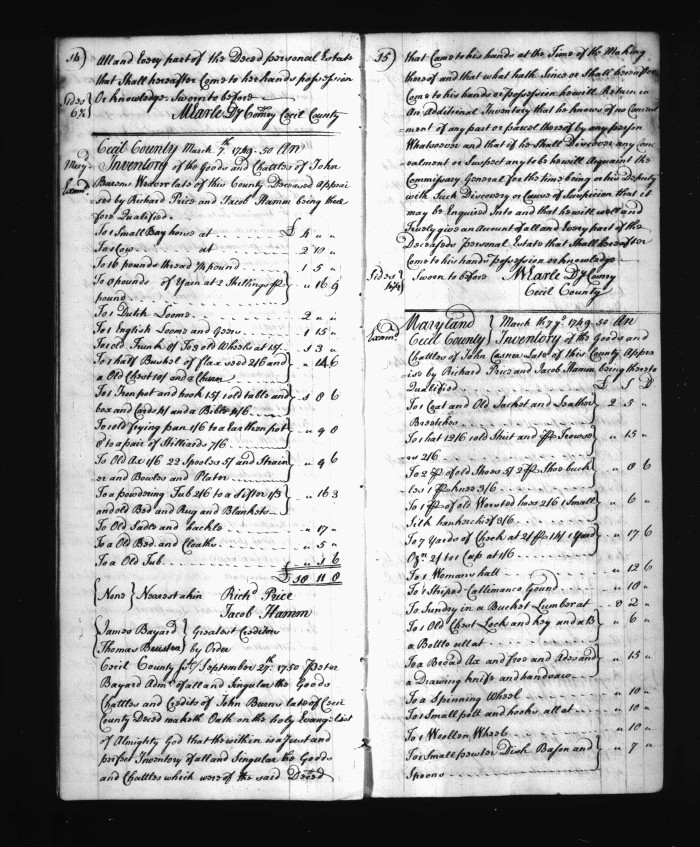 34)
All and Every part of the Deced personal Estate
that Shall hereafter Come to her hands possession
Or knowledge. Sworn to before
Sides
6¾
M Earle Dy Comry Cecil County
Cecil County March 7th 1749.50 An
Mary
Inventory of the Goods and Chattles of John
Exam.d
Burns Weavor late of this County Deceased Apprai
sed by Richard Price and Jacob Hamm being there
fore Qualified
To 1 Small Bay horse at £ 4 " "
To 1 Cow at 2 10 "
To 16 pounds thread ¼ pound 1 5 "
To 8 pounds of Yarn at 2 Shillings
pound " 16 9
To 1 Dutch Looms 2 " "
To 1 English Looms and Geers 1 15 "
To 1 old Trunk 5/ To 3 old Wheels at 15/ 1 3 "
To 1 half Bushel of flax seed 2/6 and
a Old Chest 10/ and a Churn " 14 6
To 1 Iron pot and hook 15/ 1 old table and
box and Cards 4/ and a Bible 4/6 1 8 6
To 1 old frying pan 1/6 to a Earthen pot
to a pair of Stilliards 7/6 " 9 8
To Old Ax 1/6 22 Spooles 5/ and Strain
er and Bowles and Plater " 9 6
To a powdering Tub 2/6 to a Sifter 1/3
and old Bed and Rug and Blankets " 16 3
To Old Sadle and hackle " 17 "
To a Old Bed and Cloaths " 5 "
To a Old Tub " 1 6
£ 18 11 8
{None} Nearest akin Richd Price
Jacob Hamm
James Bayard
Thomas
Greatest Creditor
by Order
Cecil County Ss/ September 27th 1750 Peter
Bayard Admr of all and Singular the Goods
Chattles and Credits of John Burns late of Cecil
County Deced maketh Oath on the holy Evangelist
of Almighty God that the within is a Just and
perfect Inventory of all and Singular the Goods
and Chattles which were of the said Deced
35)
that Came to his hands at the Time of the Making
thereof and that what hath Since or Shall hereafter
Come to his hands or possession he will Return in
An Additional Inventory that he knows of no Conceal
ment of any part or parcel thereof by any person
Whatsoever and that if he Shall Discover any Conc
ealment or Suspect any to be he will Acquaint the
Commissary General for the time being or his Deputy
with Such Discovery or Cause of Suspician that it
may be Enquired Into and that he will well and
Truely give an Account of all and every part of the
Deceaseds personal Estate that Shall hereafter
Come to his hands possession or knowledge
Sides
Sworn to before M Earle Dy Comry
Cecil County
Exam.d
Maryland
Cecil County
March th 7 1749.50 An
Inventory of the Goods and
Chattles of John Late of this County Appra
ise by Richard Price and Jacob Hamm being thereto
Qualified £ S D
To 1 Coat and Old Jacket and Leather
Breetches 2 5 "
To 1 hat 12/6 1 old Shirt and pr Trowse
rs 2/6 " 15 "
To 2 pr of old Shoes 5/ 2 pr Shoe buck
les 1 pr knee 3/6 " 8 6
To 1 pr of old Worsted hose 2/6 1 Small
Silk hankerchef 3/6 " 6 "
To 7 Yards of Check at 2/ 14/ 1 Yard
Ozn 2/ to 1 Cap at 1/6 " 17 6
To 1 Womans hatt " 12 6
To 1 Striped Callimance Gound " 18 "
To Sundry in a Bucket Lumber at 0 2 "
To 1 Old Chest Lock and key and a
a Bottle all at " 6 "
To a Broad Ax and froe and Ads and
a Drawing knife and handsaw " 15 "
To a Spinning Wheel " 10 "
To 1 Small pott and hooks all at " 10 "
To 1 Woollen Wheel " 10 "
To 1 Small pewter Dish Bason and
Spoons " 7 "